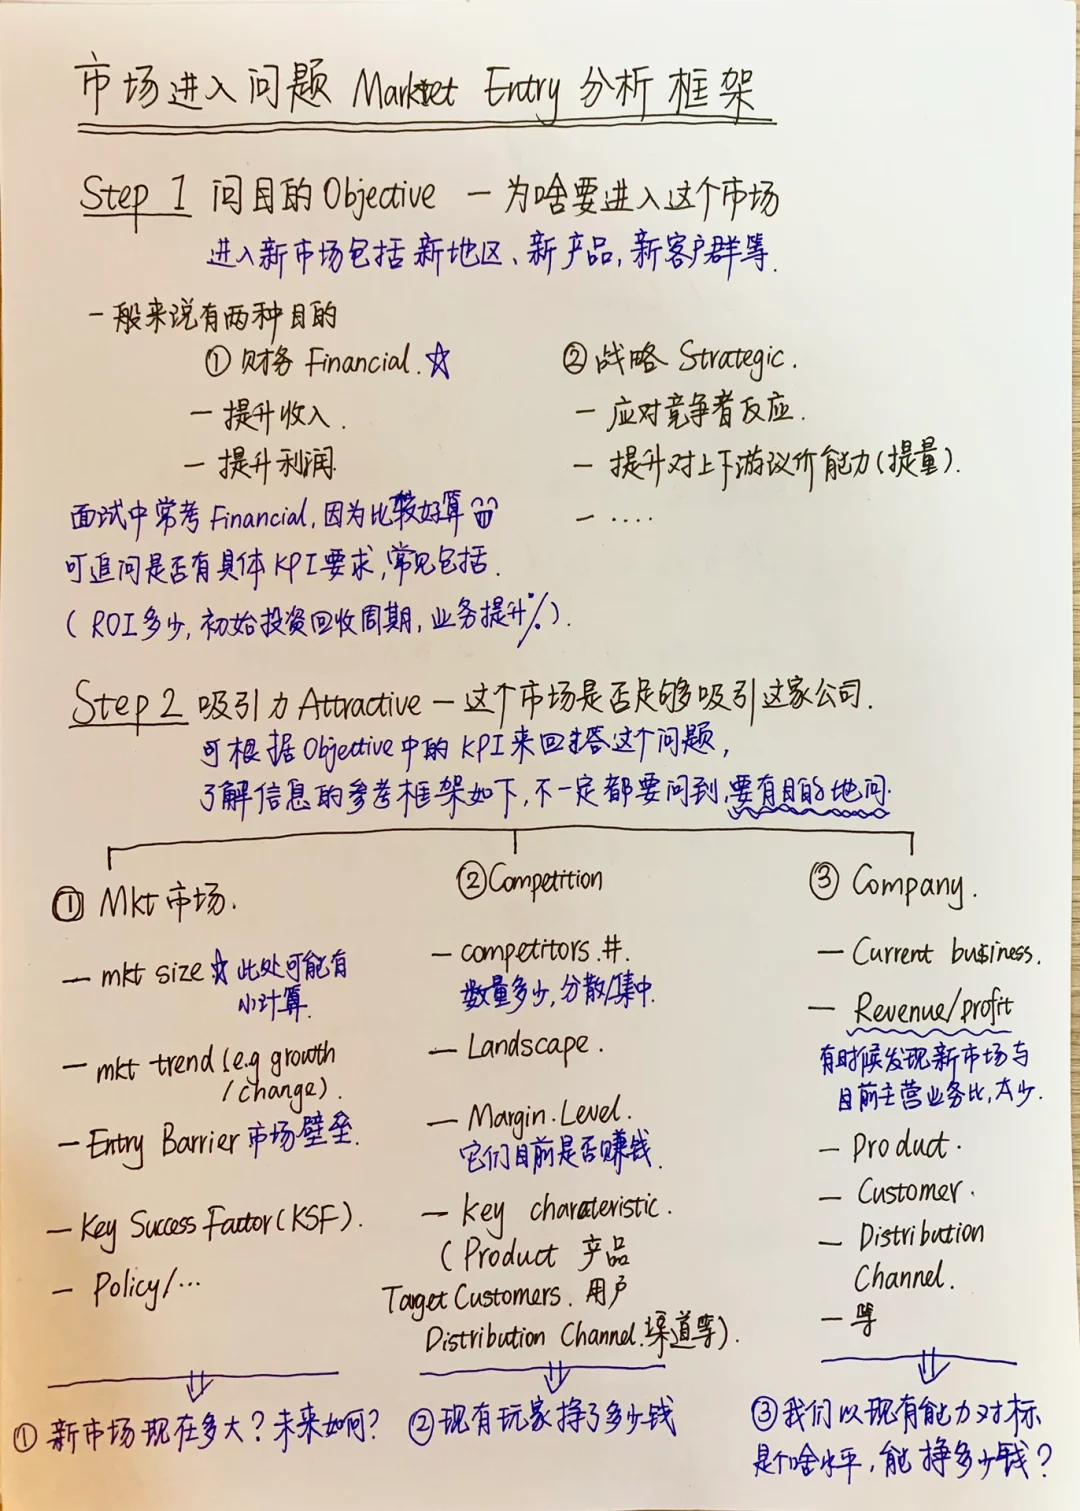 市场进入问题 Market Entry 分析框架
Step 1 问目的 Objective — 为啥要进入这个市场
进入新市场包括新地区、新产品,新客户群等.
一般来说有两种目的
① 财务 Financial. ☆
— 提升收入.
— 提升利润
② 战略 Strategic.
— 应对竞争者反应.
— 提升对上下游议价能力(提量).
— ....
面试中常考 Financial, 因为比较好算
可追问是否有具体 KPI 要求, 常见包括.
( ROI多少, 初始投资回收周期, 业务提升%).
Step 2 吸引力 Attractive — 这个市场是否足够吸引这家公司.
可根据 Objective 中的 KPI 来回答这个问题,
了解信息的参考框架如下, 不一定都要问到, 要有目的地问.
① Mkt 市场.
— mkt size ☆ 此处可能有
小计算.
— mkt trend (e.g growth
/change).
— Entry Barrier 市场壁垒.
— Key Success Factor (KSF).
— Policy/...
⇓
① 新市场现在多大? 未来如何?
② Competition
— competitors. #.
数量多少, 分散/集中.
— Landscape.
— Margin. Level.
它们目前是否赚钱.
— key charateristic.
( Product 产品
Target Customers. 用户
Distribution Channel. 渠道等).
⇓
② 现有玩家挣了多少钱
③ Company.
— Current business.
— Revenue/profit
有时候发现新市场与
目前主营业务比, 太少.
— Product.
— Customer.
— Distribution
Channel.
— 等
⇓
③ 我们以现有能力对标
是个啥水平, 能挣多少钱?